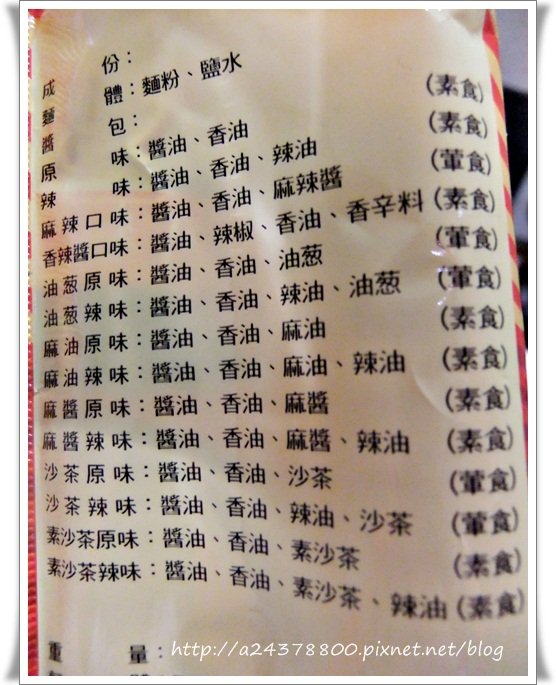 成份：
麵體：麵粉、鹽水
醬包：
原味：醬油、香油 (素食)
辣味：醬油、香油、辣油 (素食)
麻辣口味：醬油、香油、麻辣醬 (葷食)
香辣醬口味：醬油、辣椒、香油、香辛料 (素食)
油葱原味：醬油、香油、油葱 (葷食)
油葱辣味：醬油、香油、辣油、油葱 (葷食)
麻油原味：醬油、香油、麻油 (素食)
麻油辣味：醬油、香油、麻油、辣油 (素食)
麻醬原味：醬油、香油、麻醬 (素食)
麻醬辣味：醬油、香油、麻醬、辣油 (素食)
沙茶原味：醬油、香油、沙茶 (葷食)
沙茶辣味：醬油、香油、辣油、沙茶 (葷食)
素沙茶原味：醬油、香油、素沙茶 (素食)
素沙茶辣味：醬油、香油、素沙茶、辣油 (素食)
重量：
http://a24378800.pixnet.net/blog